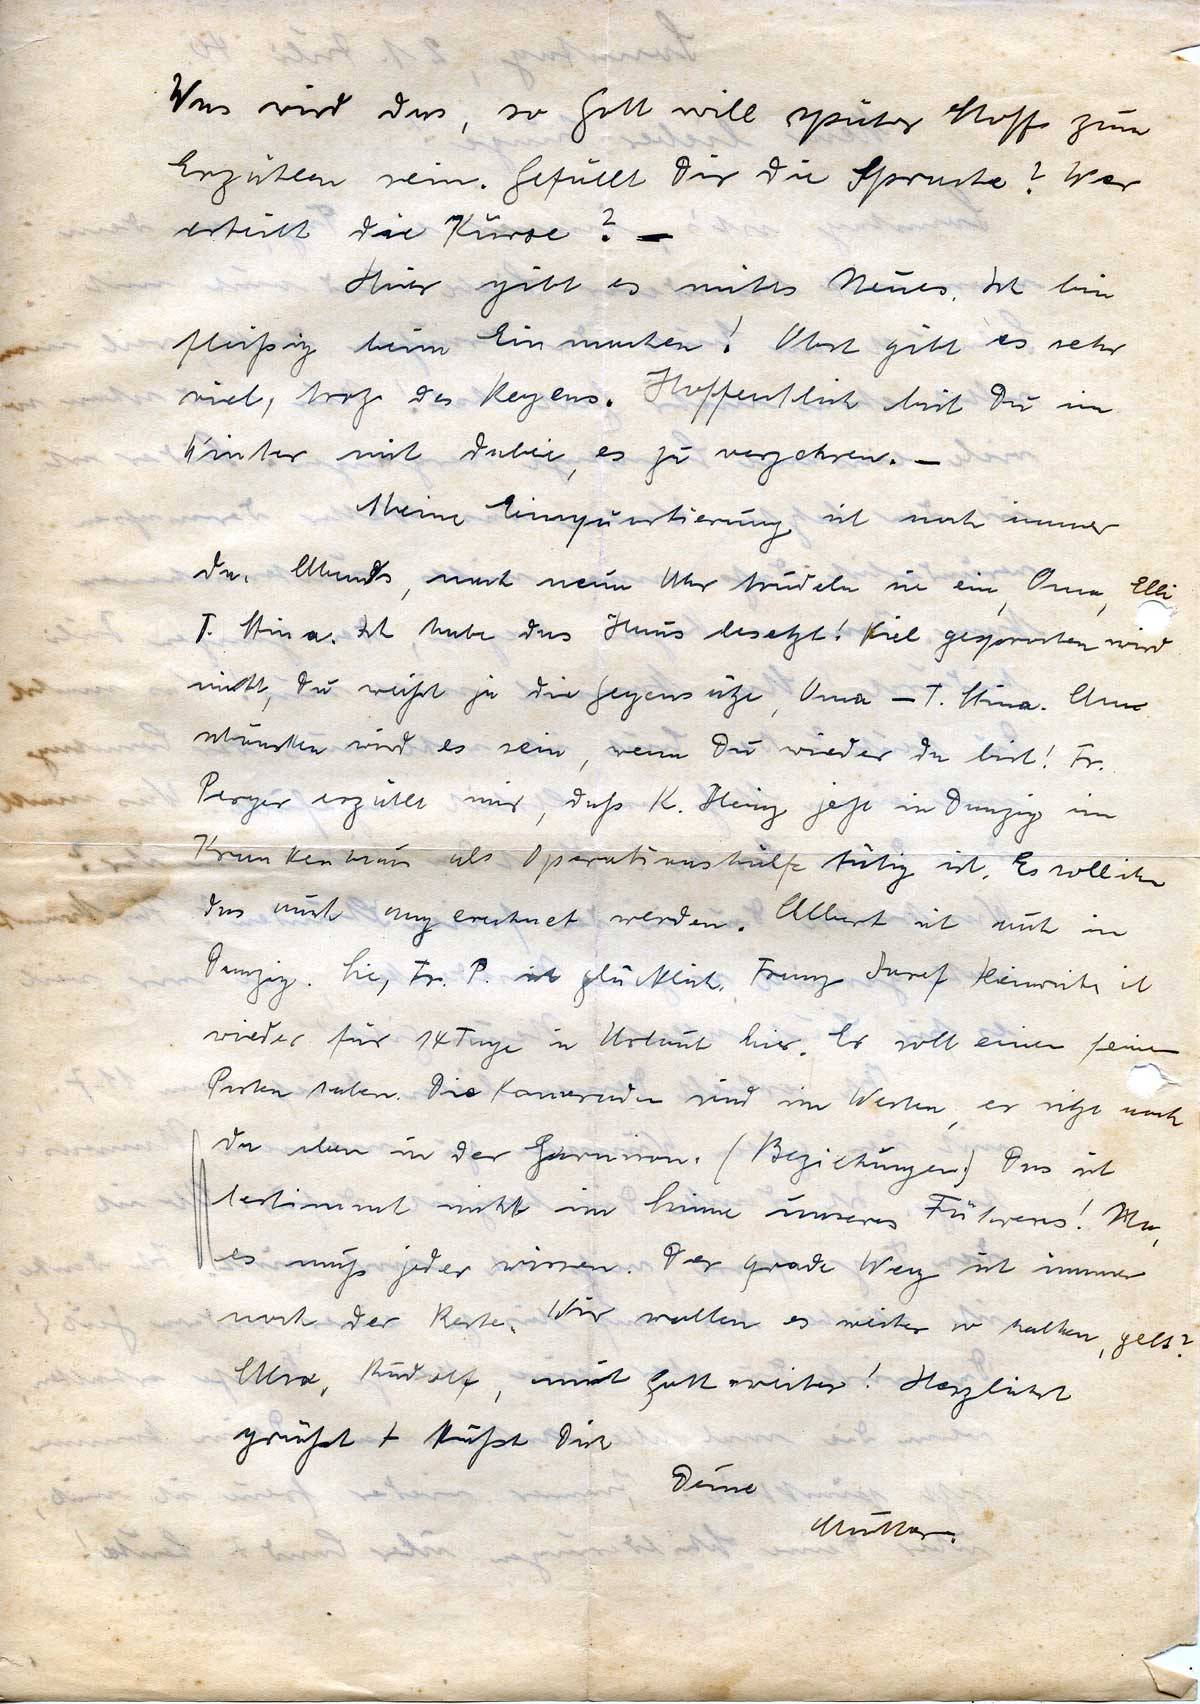 Was wird das, so Gott will später Stoff zum
Erzählen sein. Gefällt Dir die Sprache? Wer
erteilt die Kurse? —
Hier gibt es nichts Neues. Ich bin
fleißig beim Einmachen! Obst gibt es sehr
viel, trotz des Regens. Hoffentlich bist Du im
Winter mit dabei, es zu verzehren. —
Meine Einquartierung ist noch immer
da. Abends, nach neun Uhr trudeln sie ein, Oma, Elli
T. Stina. Ich habe das Haus besetzt! Viel gesprochen wird
nicht, Du weißt ja die Gegensätze, Oma — T. Stina. Am
schönsten wird es sein, wenn Du wieder da bist! Fr.
Perger erzählt mir, daß K. Heinz jetzt in Danzig im
Krankenhaus als Operationshülfe tätig ist. Es soll ihm
das auch angerechnet werden. Albert ist auch in
Danzig. Sie, Fr. P. ist glücklich. Franz Josef Heinrichs ist
wieder für 14 Tage in Urlaub hier. Er soll einen feinen
Posten haben. Die Kameraden sind im Westen, er sitzt noch
da oben in der Garnison. (Beziehungen) Das ist
bestimmt nicht im Sinne unseres Führers! Na,
es muß jeder wissen. Der grade Weg ist immer
noch der Beste. Wir wollen es weiter so halten, gell?
Also, Rudolf, mit Gott weiter! Herzlichst
grüßt + küßt Dich
Deine
Mutter.